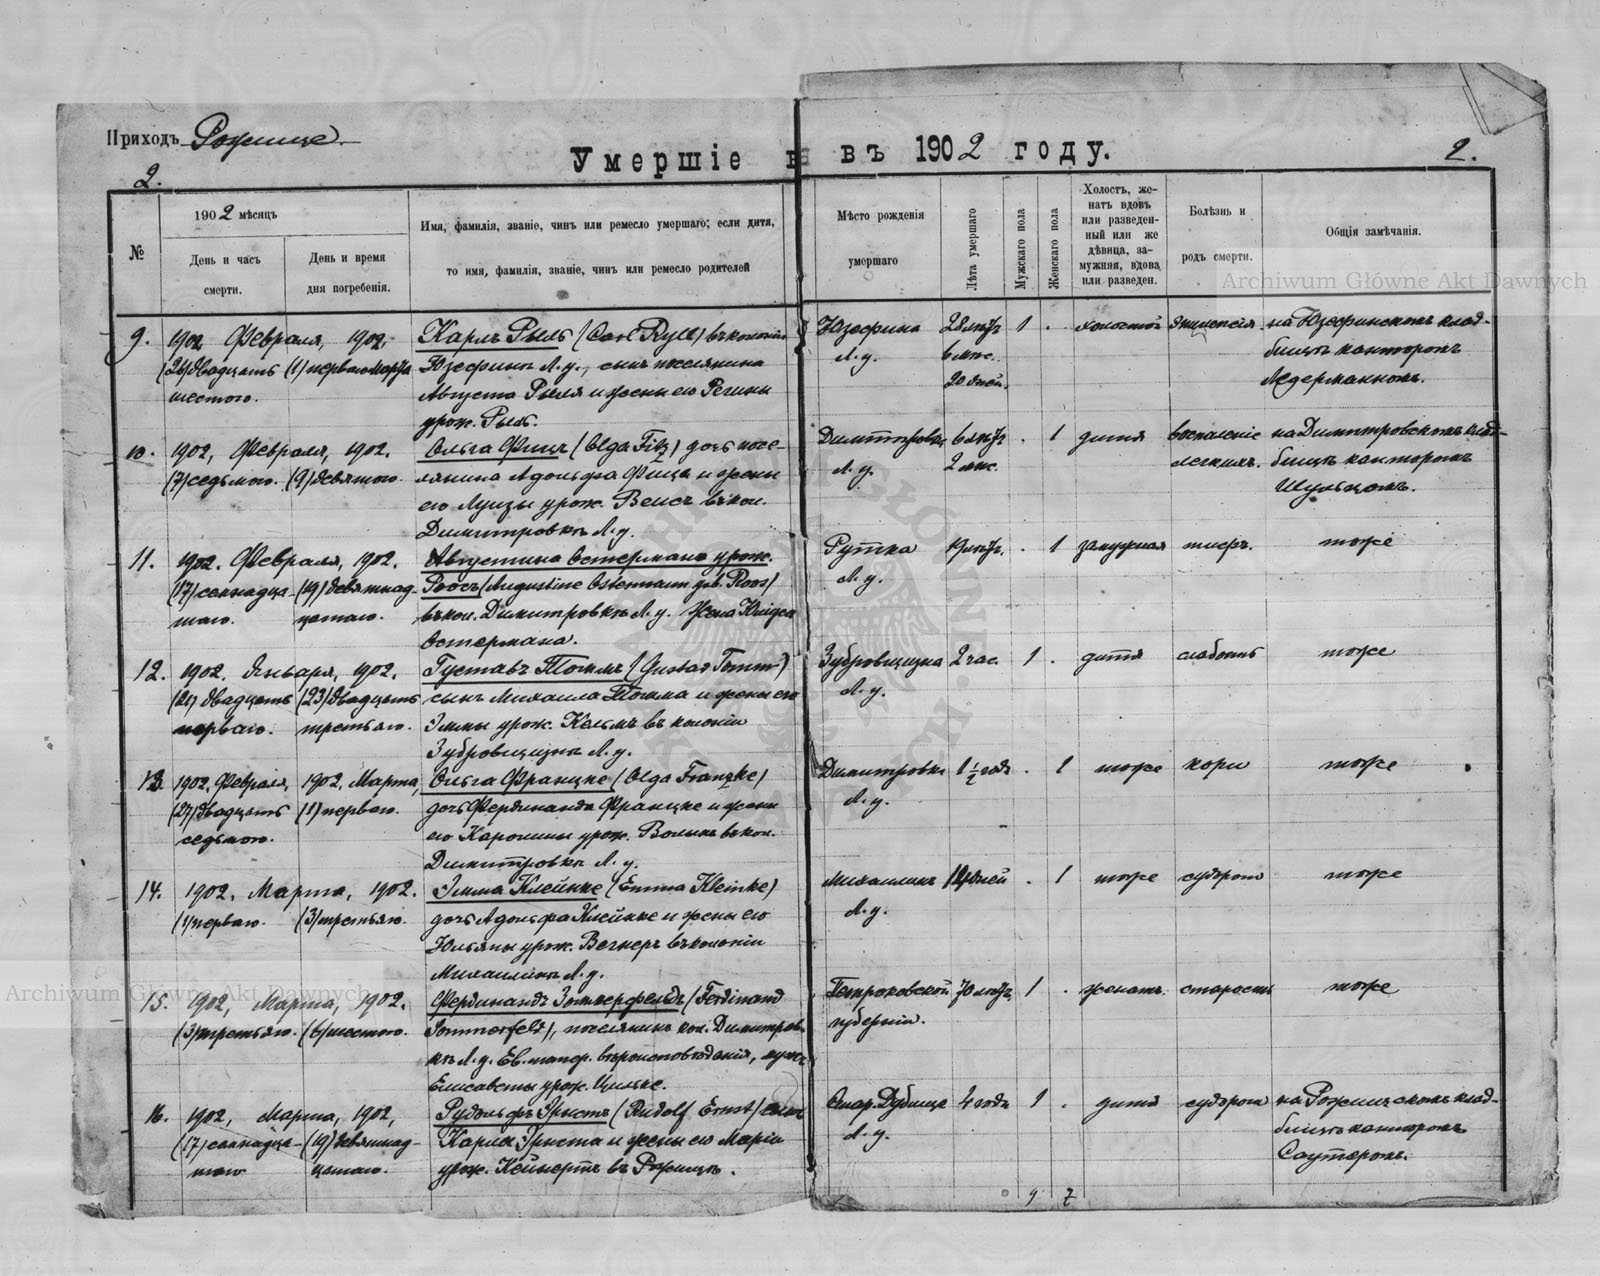 Приходъ Рожище.
Умершіе въ 1902 году.
2.
2.
№
1902 мѣсяцъ
День и часъ смерти.
День и время дня погребенія.
Имя, фамилія, званіе, чинъ или ремесло умершаго; если дитя,
то имя, фамилія, званіе, чинъ или ремесло родителей
Мѣсто рожденія
умершаго
Лѣта умершаго
Мужскаго пола
Женскаго пола
Холостъ, же-
натъ вдовъ
или разведен-
ный или же
дѣвица, за-
мужняя, вдова
или разведен.
Болѣзнь и
родъ смерти.
Общія замѣчанія.
Archiwum Główne Akt Dawnych
9. 1902 Февраля, 1902. Карлъ Рыль (Carl Ryll) въ колоніи Юзефина 28 лѣтъ 1 . холостой эпилепсія. на Юзефинскомъ клад-
(26) двадцать (1) перваго Марта Юзефинъ Л. у., сынъ поселянина Л. у. 6 мѣс. бищѣ канторомъ
шестого. Августа Рыля и жены его Регины 20 дней. Ледерманномъ.
урож. Рыль.
10. 1902, Февраля, 1902. Ольга Фицъ (Olga Fitz) дочь посе- Димитровка 6 лѣтъ . 1 дитя воспаленіе на Димитровскомъ клад-
(7) седьмого. (9) девятого. лянина Адольфа Фица и жены Л. у. 2 мѣс. легкихъ. бищѣ канторомъ
его Луизы урож. Вейсъ въ кол. Шульцомъ.
Димитровкѣ Л. у.
11. 1902. Февраля, 1902. Августина Остерманъ урож. Рутка 19 лѣтъ . 1 замужняя тифъ. тоже
(17) семнадца- (19) девятнад- Роосъ (Augustine Ostermann geb. Roos) Л. у.
таго. цатаго. въ кол. Димитровкѣ Л. у. Жена
Остермана.
12. 1902. Января, 1902. Густавъ Томмъ (Gustav Tomm) Зубровщизна 2 час. 1 . дитя слабость тоже
(21) двадцать (23) двадцать сынъ Михаила Томма и жены его Л. у.
перваго. третьяго. Эммы урож. Кельмъ въ колоніи
Зубровщизнѣ Л. у.
13. 1902, Февраля, 1902, Марта, Ольга Францке (Olga Franzke) Димитровка 1 1/2 года . 1 тоже кори тоже
(27) двадцать (1) перваго. дочь Фердинанда Францке и жены Л. у.
седьмого. его Каролины урож. въ кол.
Димитровкѣ Л. у.
14. 1902. Марта, 1902. Эмма Клейнке (Emma Kleinke) Михаилинъ 14 дней . 1 тоже судороги тоже
(1) перваго. (3) третьяго. дочь Адольфа Клейнке и жены его Л. у.
Юльяны урож. Вегнеръ въ колоніи
Михаилинѣ Л. у.
Archiwum Główne Akt Dawnych
15. 1902, Марта, 1902. Фердинандъ Зоммерфельдъ (Ferdinand Петроковской 70 лѣтъ 1 . женатъ. старость тоже
(3) третьяго. (6) шестого. Sommerfeld), поселянинъ кол. Димитров- губерніи.
кѣ Л. у. Ев. лютер. вѣроисповѣданія, мужъ
Елисаветы урож. Цильке.
16. 1902, Марта, 1902, Рудольфъ Эрнстъ (Rudolf Ernst) сынъ Стар. Дубище 4 года 1 . дитя судороги на Рожищскомъ клад-
(17) семнадца- (19) девятнад- Карла Эрнста и жены его Маріи Л. у. бищѣ канторомъ
таго цатаго. урож. Кейнертъ въ Рожищѣ. Саутеромъ.
9 7